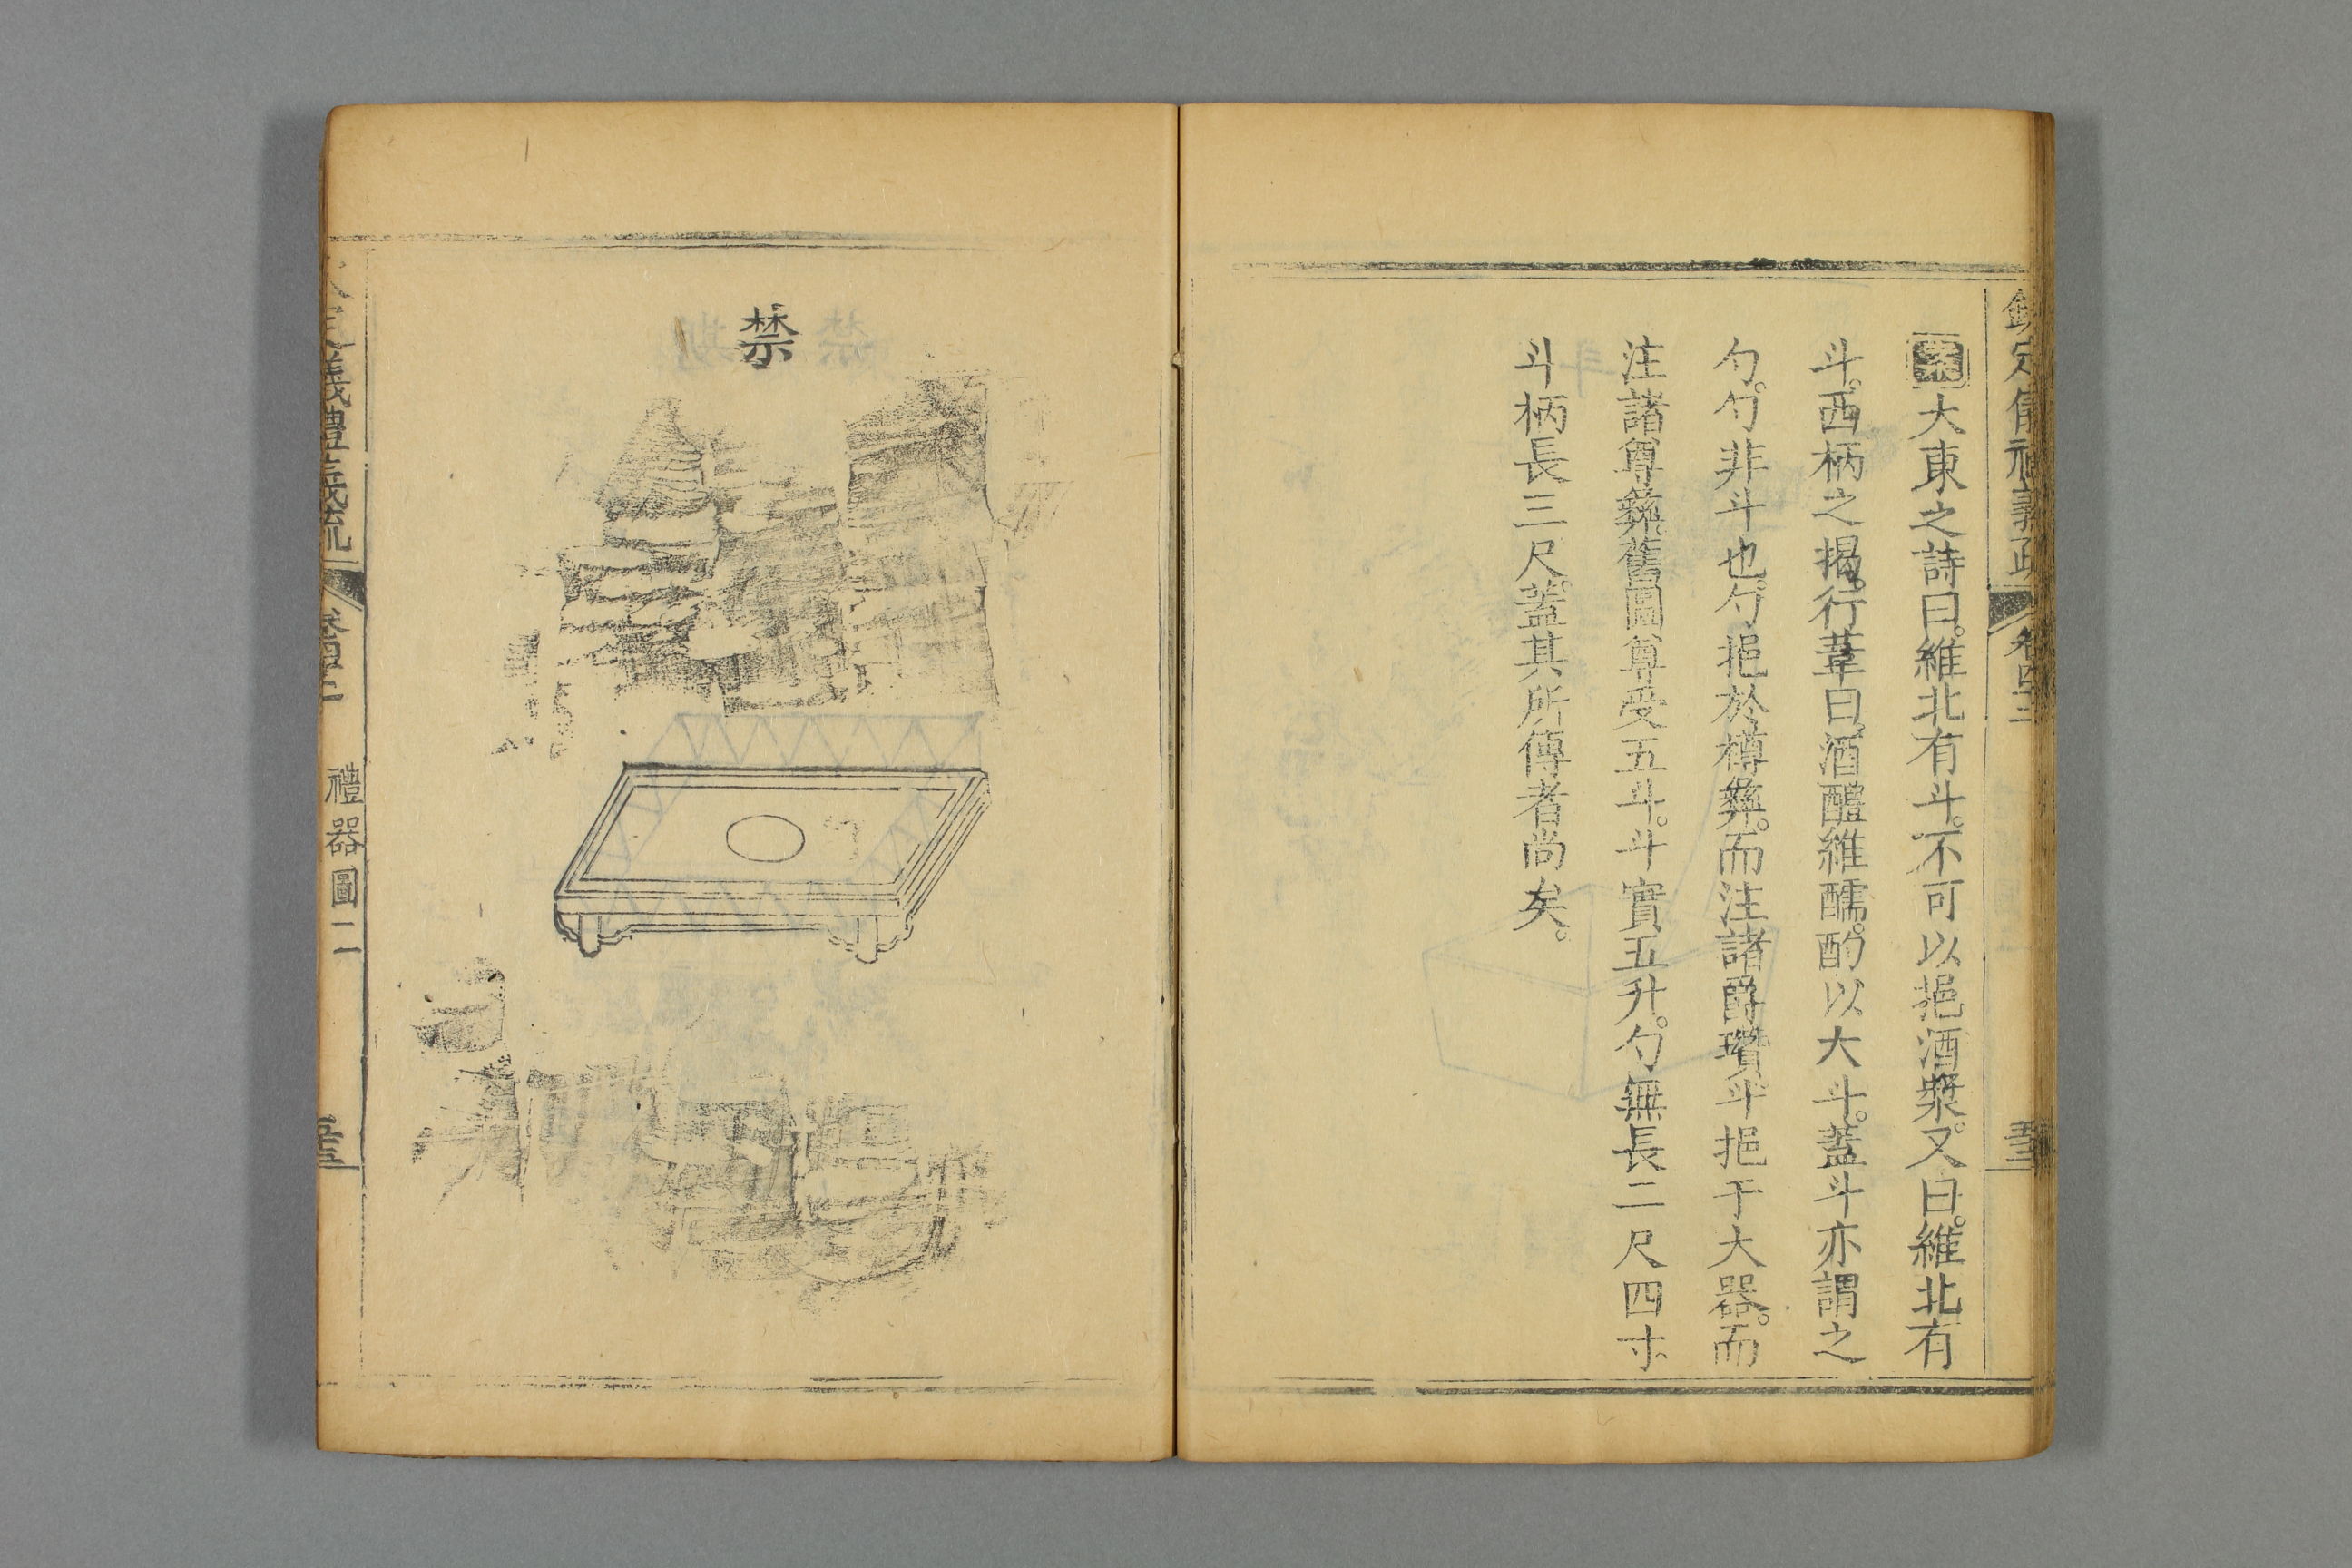 欽定儀禮義疏 卷四十二 五十三
案大東之詩曰。維北有斗。不可以挹酒漿。又曰。維北有
斗。西柄之揭。行葦曰。酒醴維醹。酌以大斗。蓋斗亦謂之
勺。勺非斗也。勺挹於樽彝。而注諸爵瓚。斗挹于大器。而
注諸尊彝。舊圖尊受五斗。斗實五升。勺無長二尺四寸。
斗柄長三尺。蓋其所傳者尚矣。
禁
義禮義疏 禮器圖二